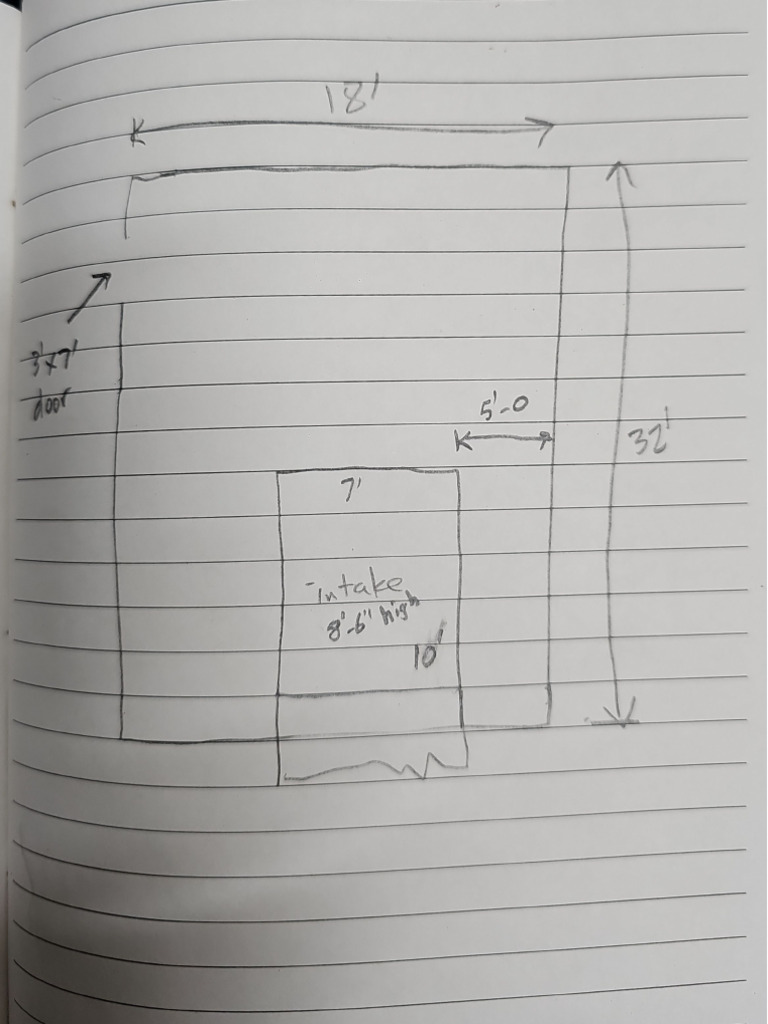 18'
3'x7'
door
5'-0
32'
7'
intake
8'-6" high
10'